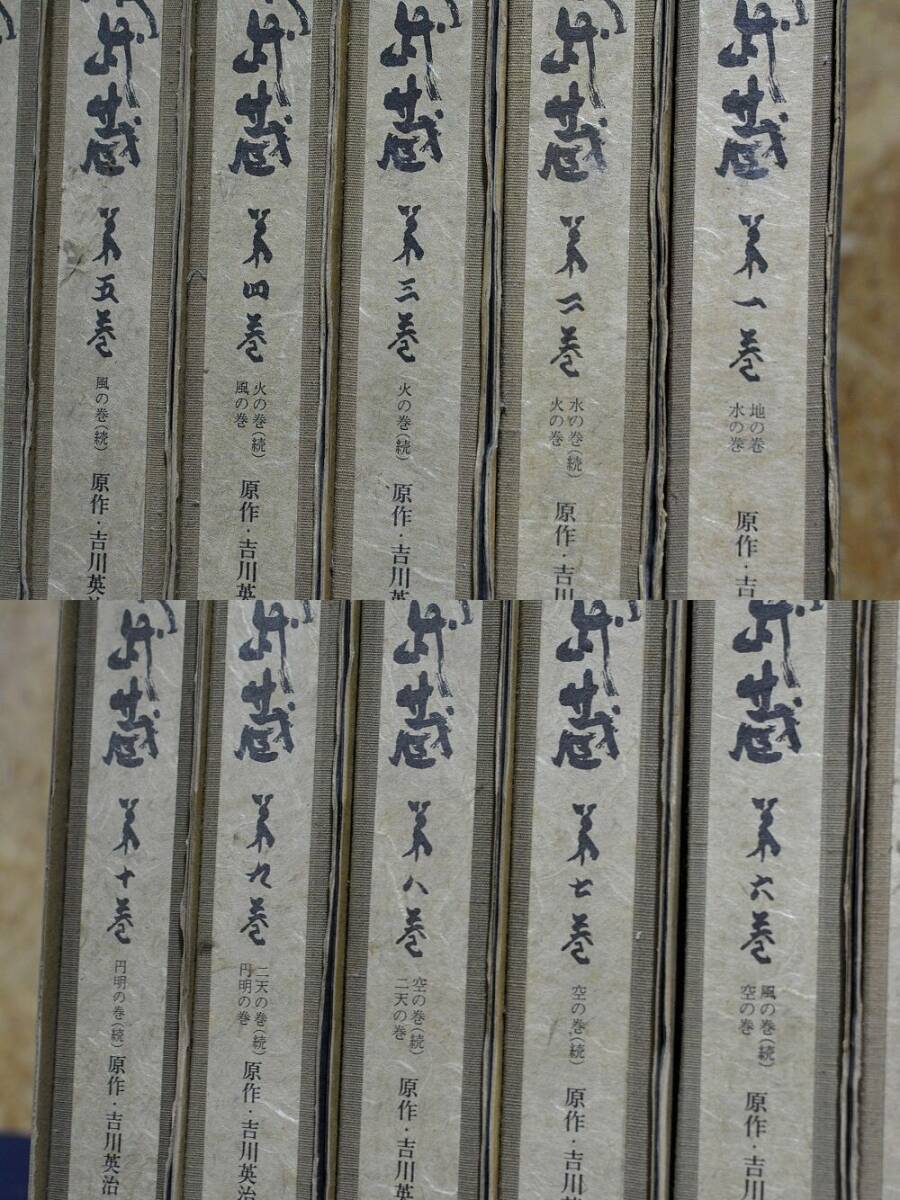 武蔵 第一巻
地の巻
水の巻
原作・吉
武蔵 第二巻
水の巻(続)
火の巻
原作・吉川
武蔵 第三巻
火の巻(続)
原作・吉川英
武蔵 第四巻
火の巻(続)
風の巻
原作・吉川英
武蔵 第五巻
風の巻(続)
原作・吉川英治
武蔵 第六巻
風の巻(続)
空の巻
原作・吉川
武蔵 第七巻
空の巻(続)
原作・吉川英
武蔵 第八巻
空の巻(続)
二天の巻
原作・吉川英
武蔵 第九巻
二天の巻(続)
円明の巻
原作・吉川英治
武蔵 第十巻
円明の巻(続)
原作・吉川英治